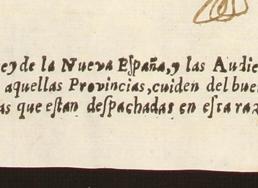 ey de la Nueva Eſpaña, y las Audie
aquellas Provincias, cuiden del bue
as que eſtan deſpachadas en eſta raz